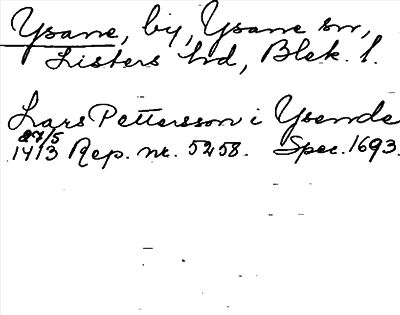 Ysane, by, Ysane sn,
Listers hd, Blek. l.
Lars Pettersson i Ysende
27/5
1413 Rep. nr. 5258. Spec. 1693.